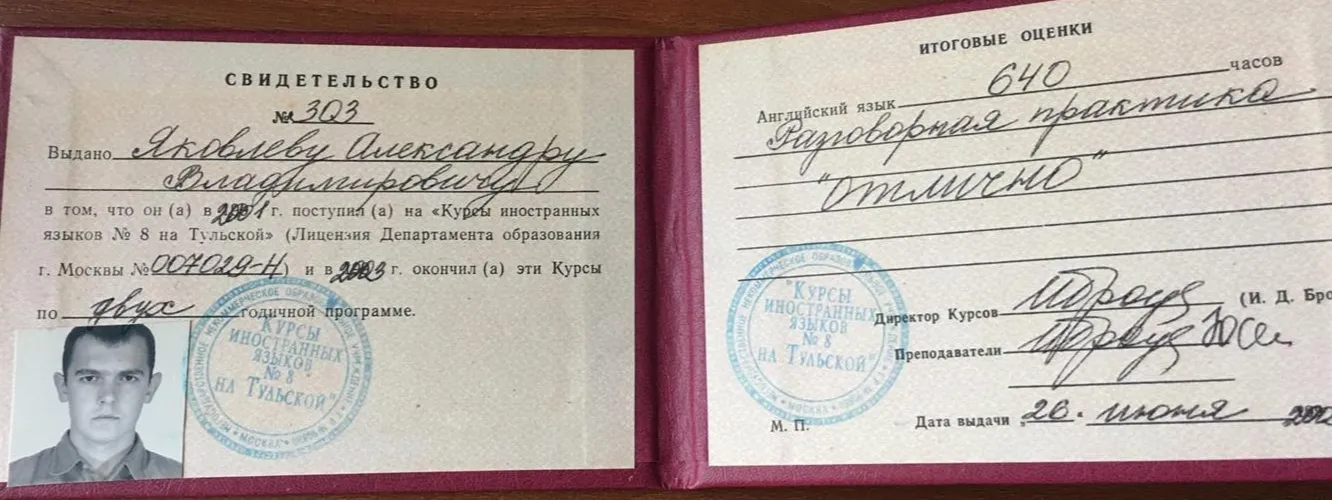 СВИДЕТЕЛЬСТВО
№ 303
Выдано Яковлеву Александру
Владимировичу
в том, что он (а) в 2001 г. поступил (а) на «Курсы иностранных
языков № 8 на Тульской» (Лицензия Департамента образования
г. Москвы № 007029-Н) и в 2003 г. окончил (а) эти Курсы
по двух годичной программе.
"КУРСЫ
ИНОСТРАННЫХ
ЯЗЫКОВ
№ 8
НА ТУЛЬСКОЙ"
МОСКВА
ИТОГОВЫЕ ОЦЕНКИ
Английский язык 640 часов
Разговорная практика
"Отлично"
"КУРСЫ
ИНОСТРАННЫХ
ЯЗЫКОВ
№ 8
НА ТУЛЬСКОЙ"
МОСКВА
Директор Курсов (И. Д. Бро
Преподаватели
М. П.
Дата выдачи „26. июня